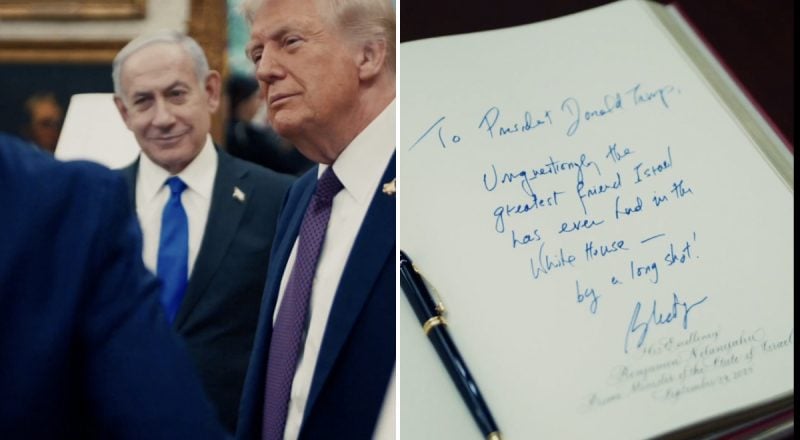 To President Donald Trump,
Unquestionably the
greatest friend Israel
has ever had in the
White House —
by a long shot!
His Excellency
Benjamin Netanyahu
Prime Minister of the State of Israel
September 29, 2025